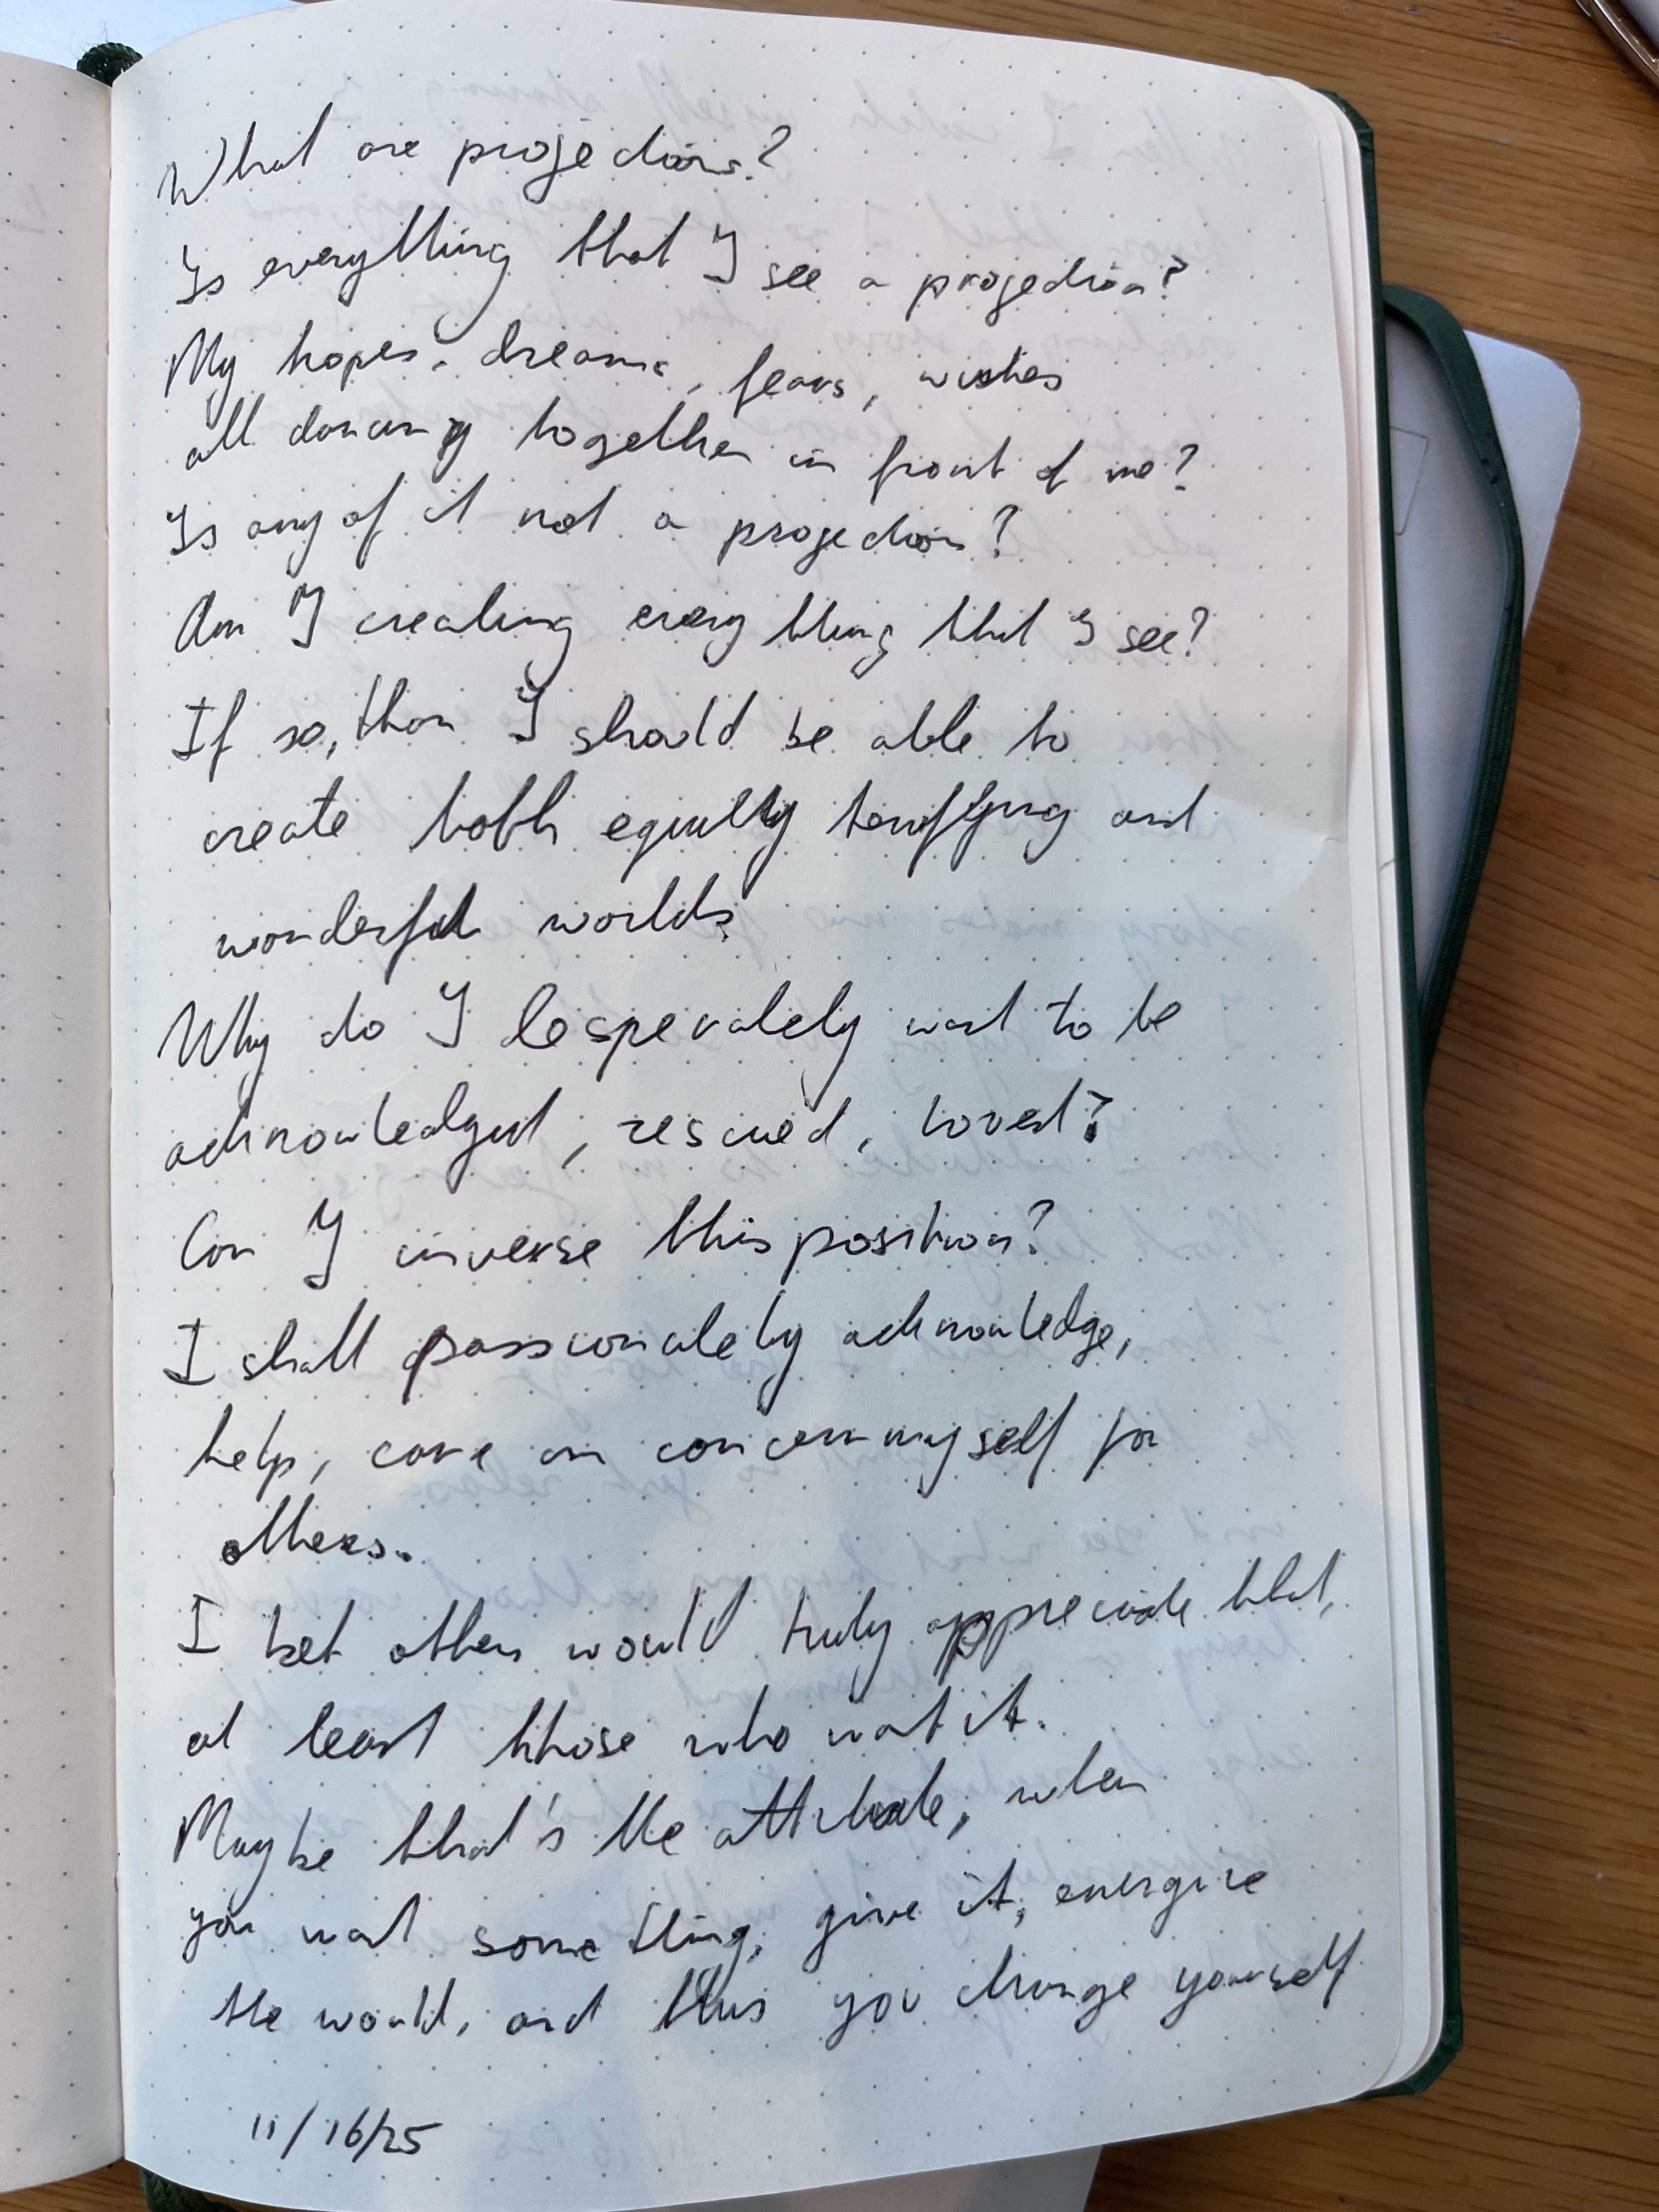 What are projections?
Is everything that I see a projection?
My hopes, dreams, fears, wishes
all dancing together in front of me?
Is any of it not a projection?
Am I creating every thing that I see?
If so, then I should be able to
create both equally terrifying and
wonderful worlds
Why do I desperately want to be
acknowledged, rescued, loved?
Can I inverse this position?
I shall passionately acknowledge,
help, care an concern myself for
others.
I bet others would truly appreciate that,
at least those who want it.
Maybe that's the attitude, when
you want something, give it, energize
the world, and thus you change yourself
11/16/25